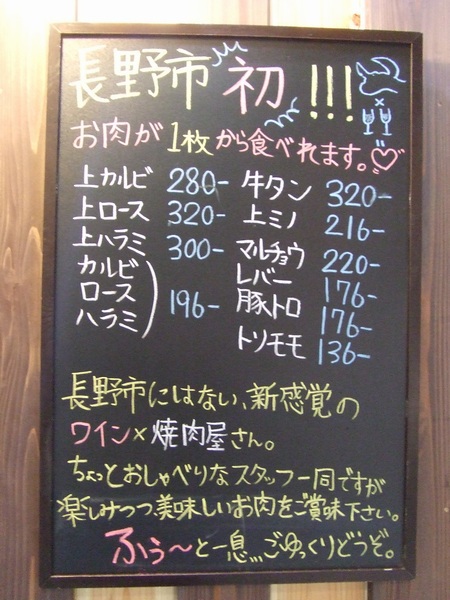 長野市初!!!
お肉が1枚から食べれます。♡
上カルビ 280-
上ロース 320-
上ハラミ 300-
カルビ
ロース 196-
ハラミ
牛タン 320-
上ミノ 216-
マルチョウ 220-
レバー 176-
豚トロ 176-
トリモモ 136-
長野市にはない、新感覚の
ワイン×焼肉屋さん。
ちょっとおしゃべりなスタッフ一同ですが
楽しみつつ美味しいお肉をご賞味下さい。
ふぅ〜と一息,,,ごゆっくりどうぞ。